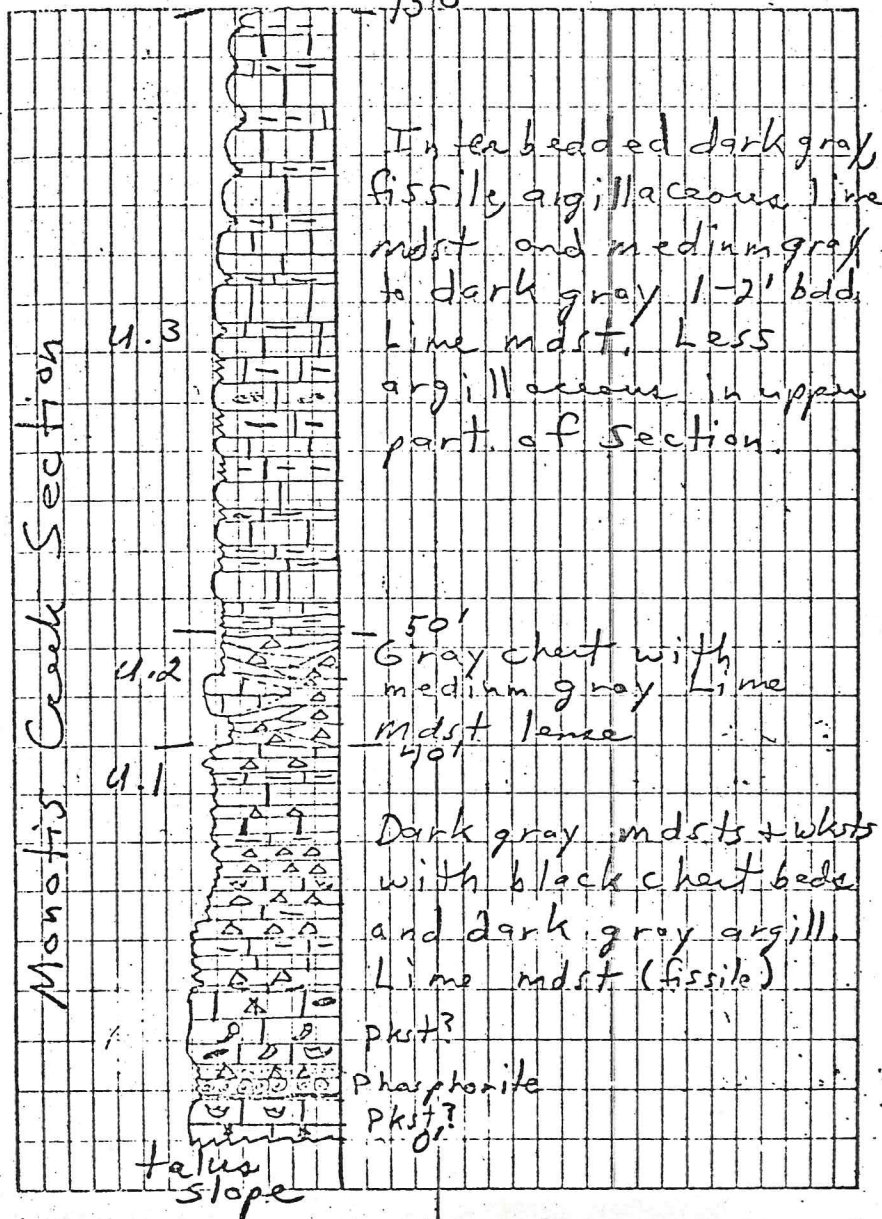 Monotis Creek Section
Interbedded dark gray,
fissile, argillaceous lime
mdst and medium gray
to dark gray 1-2' bdd.
Lime mdst. Less
argillaceous in upper
part of section.
4.3
50'
Gray chert with
medium gray Lime
mdst lense
4.2
40'
4.1
Dark gray mdsts + wksts
with black chert beds
and dark gray argill.
Lime mdst (fissile)
pkst?
Phosphorite
Pkst?
0'
talus
slope